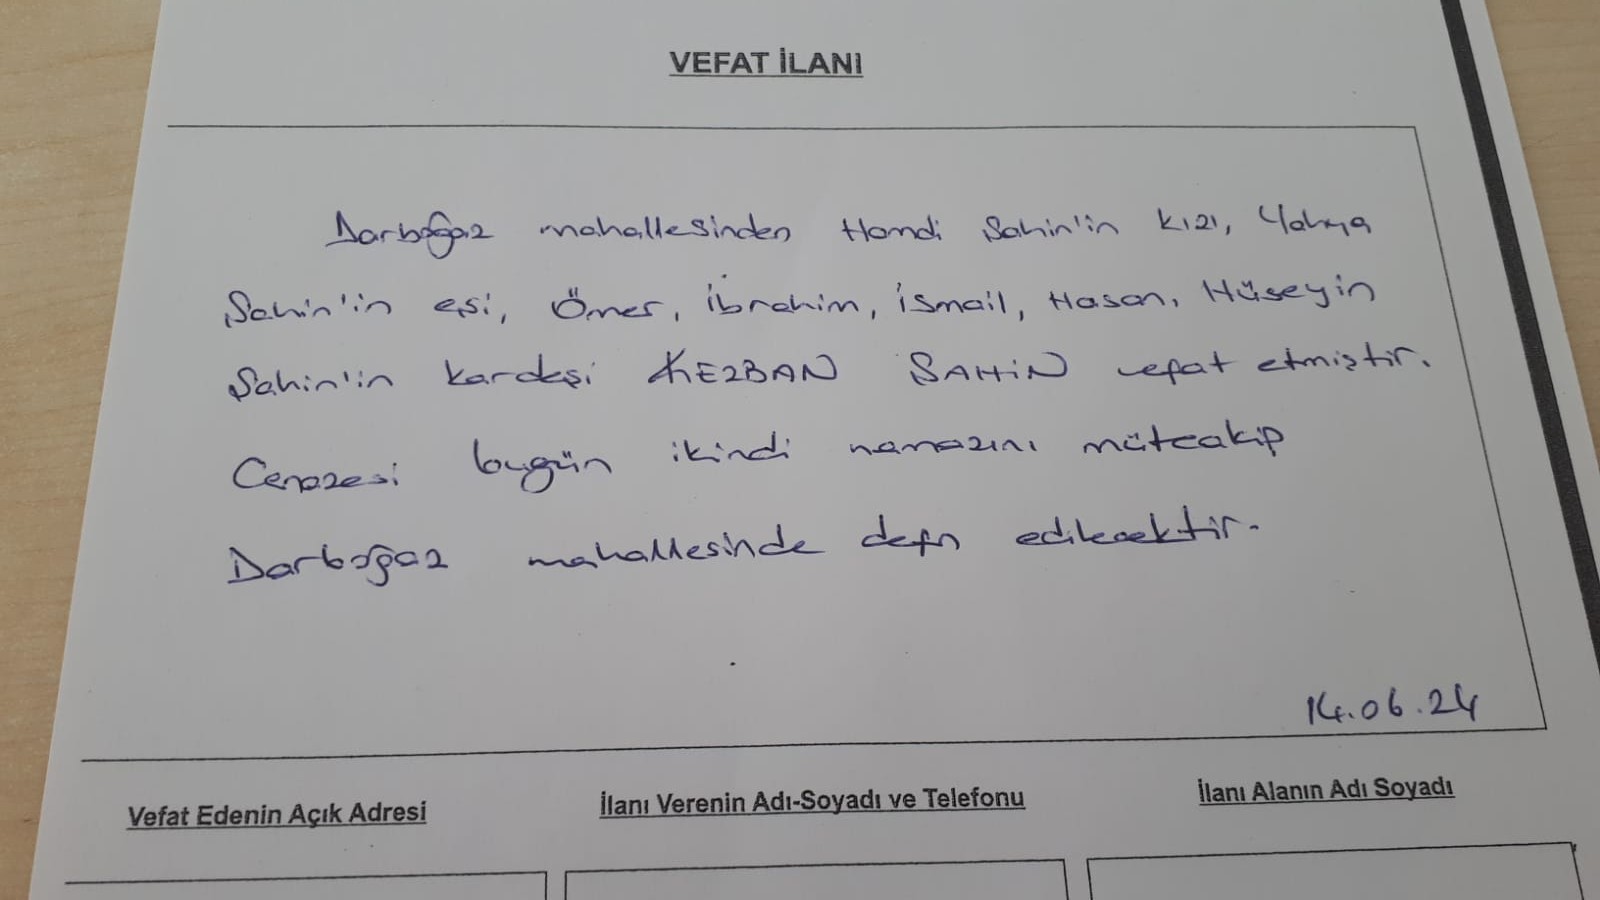 VEFAT İLANI
Darboğaz mahallesinden Hamdi Şahin'in kızı, Yahya
Şahin'in eşi, Ömer, İbrahim, İsmail, Hasan, Hüseyin
Şahin'in kardeşi KEZBAN ŞAHİN vefat etmiştir.
Cenazesi bugün ikindi namazını müteakip
Darboğaz mahallesinde defn edilecektir.
14.06.24
Vefat Edenin Açık Adresi
İlanı Verenin Adı-Soyadı ve Telefonu
İlanı Alanın Adı Soyadı